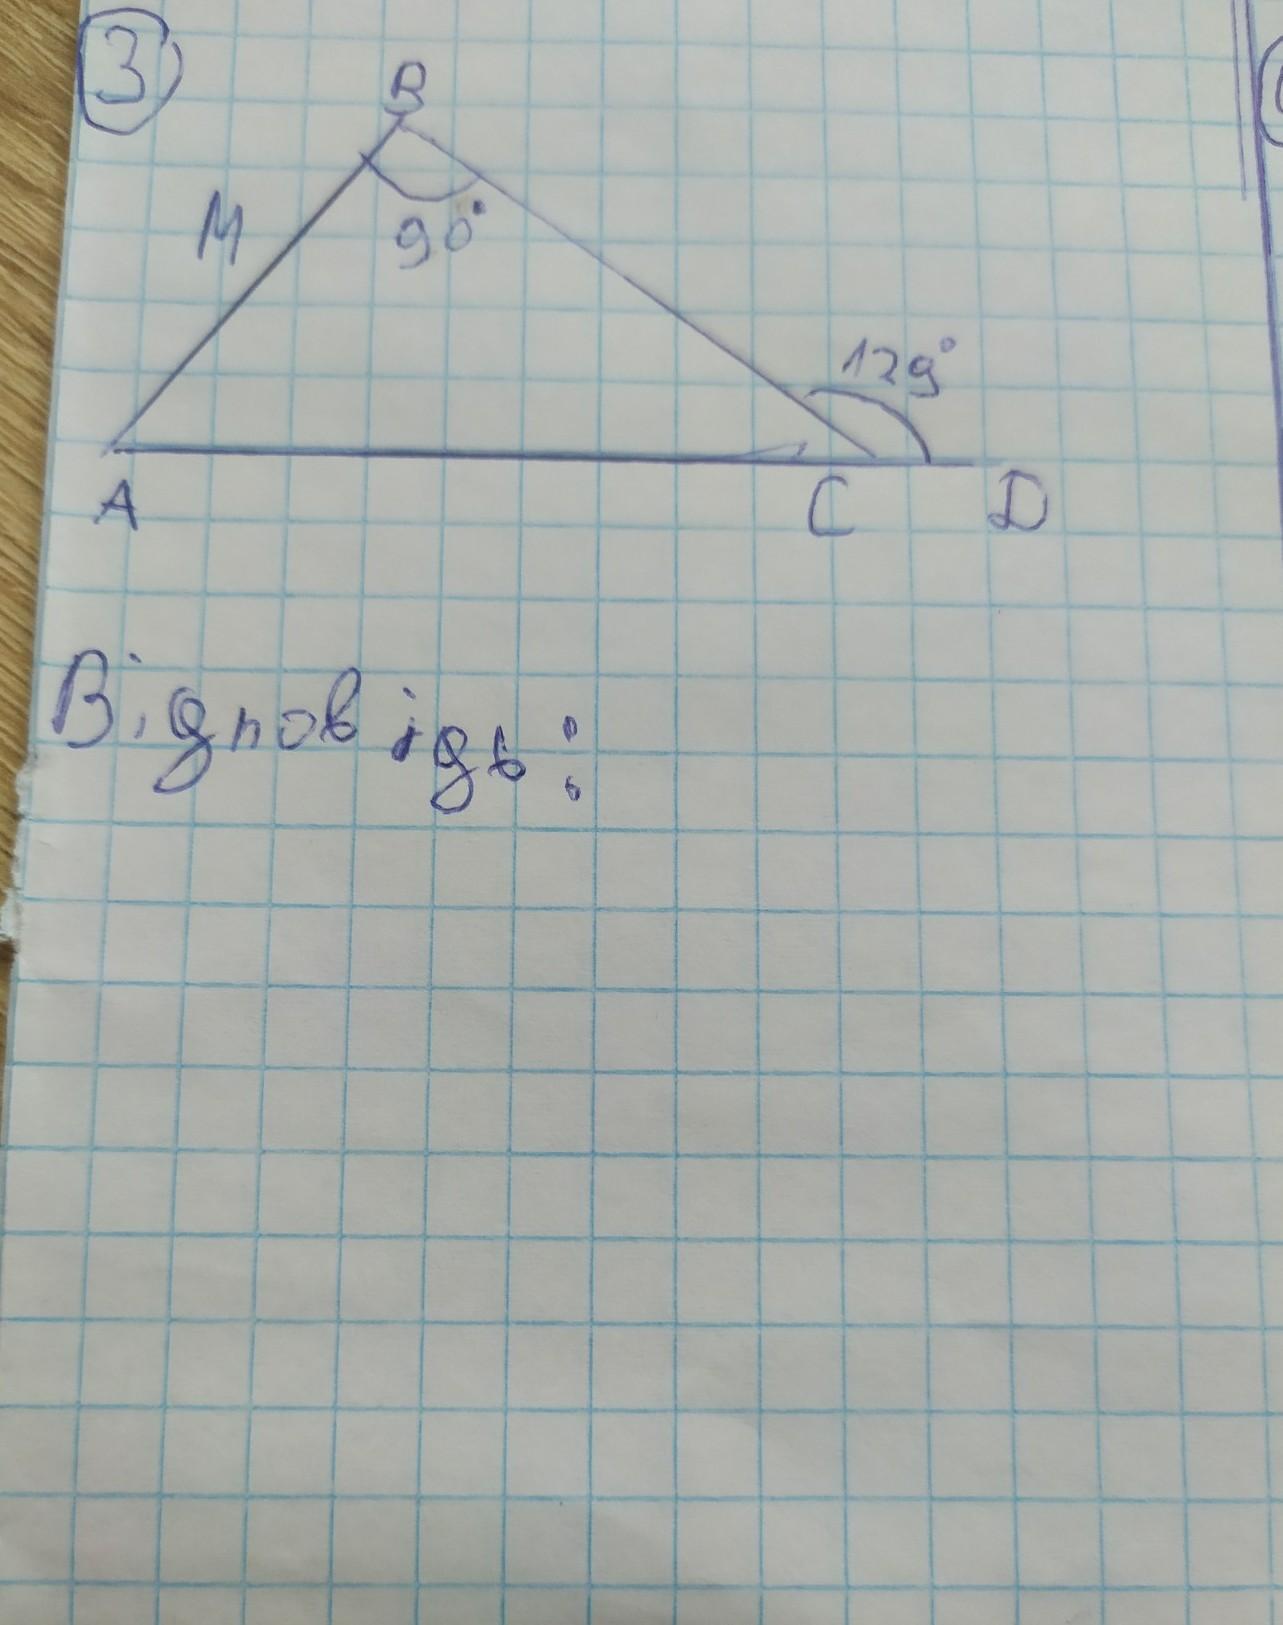 3
B
M
90°
129°
A
C
D
Відповідь: